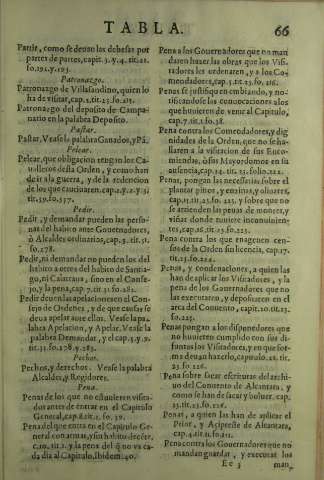 TABLA.
66
Partir, como se deuan las debesas por
partes de partes, capit. 3. y. 4. tit. 21.
fo. 192. y. 193.
Patronazgo.
Patronazgo de Villasandino, quien lo
ha de visitar, cap. 3. tit. 23. fo. 215.
Patronazgo del deposito de Campa-
nario en la palabra Deposito.
Pastar.
Pastar. Vease la palabra Ganados, y Pã.
Pelear.
Pelear, que obligacion tengan los Ca-
ualleros desta Orden, y como han
de ir a la guerra, y de la redencion
de los que cautiuaren. cap. 1. y. 2. y. 3.
tit. 59. fo. 537.
Pedir.
Pedir, y demandar pueden las perso-
nas del habito ante Gouernadores,
ò Alcaldes ordinarios, cap. 3. tit. 31.
fo. 278.
Pedir, ni demandar no pueden los del
habito a otros del habito de Santia-
go, ni Calatraua, sino en el Conse-
jo, y la pena, cap. 7. tit. 31. fo. 281.
Pedir deuen las apelaciones en el Con-
sejo de Ordenes, y de que causas se
deua apelar ante ellas. Vease la pa-
labra Apelacion, y Apelar. Vease la
palabra Demandar, y el cap. 3. y. 9.
tit. 31. fo. 278. y. 283.
Pechos.
Pechos, y derechos. Vease la palabra
Alcaldes, y Regidores.
Pena.
Penas de los que no estuuieren visita-
dos antes de entrar en el Capitulo
General, cap. 8. tit. 1. fo. 39.
Pena del que entra en el Capitulo Ge-
neral con armas, y sin habito decẽte,
c. 10. tit. 1. y la pena del q̃ no va ca-
da dia al Capitulo, Ibidem 40.
Pena a los Gouernadores que no man
daren hazer las obras que los Visi-
tadores les ordenaren, y a los Co-
mendadores, cap. 3. tit. 23. fo. 216.
Penas se justifiquen embiando, y no-
tificandose las conuocaciones a los
que huuieren de venir al Capitulo,
cap. 7. tit. 1. fo. 38.
Pena contra los Comendadores, y dig
nidades de la Orden, que no seña-
laren a la visitacion de sus Enco-
miendas, ò sus Mayordomos en su
ausencia, cap. 14. tit. 23. folio. 222.
Penas, pongan las necessarias, sobre el
plantar pinos, y enzinas, y oliuares,
cap. 15. tit. 23. fo. 223. y sobre que no
se arrienden las penas de montes, y
viñas donde tuuiere inconuinien-
tes, cap. 26. tit. 23. fo. 225.
Pena contra los que enagenen cen-
sos de la Orden sin licencia, cap. 17.
tit. 23. fo. 224.
Penas, y condenaciones, a quien las
han de aplicar los Visitadores, y la
pena de los Gouernadores que no
las executaren, y depositaren en el
arca del Conuento, capit. 20. tit. 23.
fo. 225.
Penas pongan a los disponedores que
no huuieren cumplido con sus di-
funtos los Visitadores, y en que for-
ma deuan hazerlo, capitulo. 21. tit.
23. fo. 226.
Pena sobre sacar escrituras del archi-
uo del Conuento de Alcantara, y
como se han de sacar y boluer. cap.
23. tit. 23. fo. 228.
Penas, a quien las han de aplicar el
Prior, y Acipreste de Alcantara,
cap. 4. tit. 6. fo. 111.
Pena contra los Gouernadores que no
mandan guardar, y executar los
Ee 3 man-